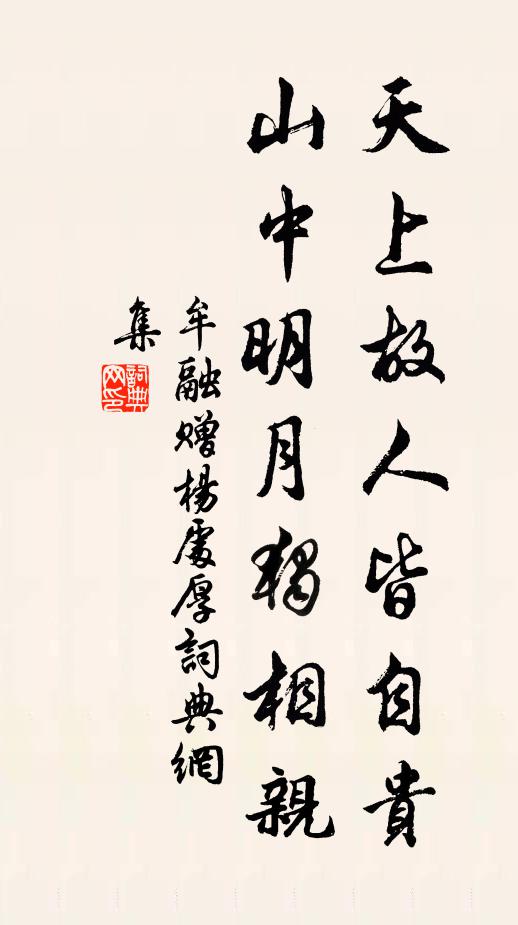 天上故人皆自貴
山中明月獨相親
牟融贈楊處厚詞典網
集
詞典網印